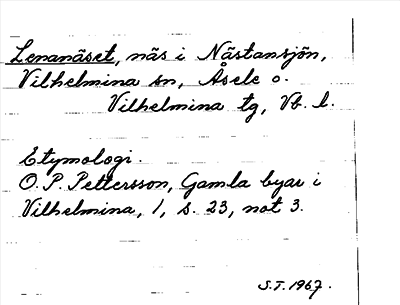 Lenanäset, näs i Nästansjön,
Vilhelmina sn, Åsele o.
Vilhelmina tg, Vb. l.
Etymologi.
O. P. Pettersson, Gamla byar i
Vilhelmina, 1, s. 23, not 3.
S.T. 1967.